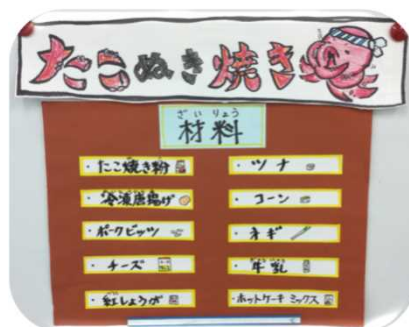 たこぬき焼き
ざいりょう
材料
・たこ焼き粉
・冷凍唐揚げ
・ポークビッツ
・チーズ
・紅しょうが
・ツナ
・コーン
・ネギ
・牛乳
・ホットケーキミックス